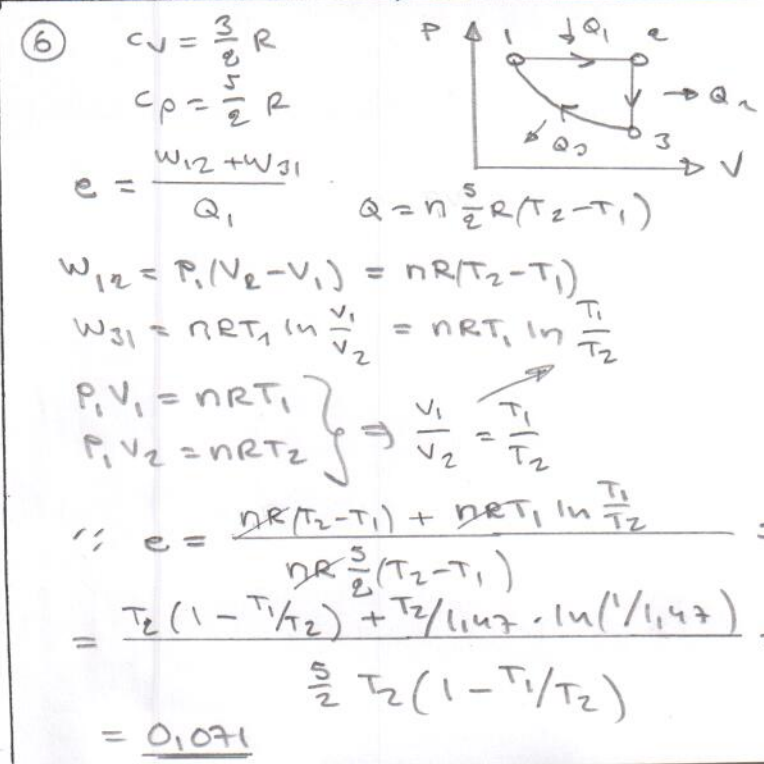 ⑥ c_V = 3/2 R
c_p = 5/2 R
P 1 ↓Q_1 2
→ Q_2
Q_3 3
V
e = (W_12 + W_31) / Q_1
Q = n 5/2 R(T_2 - T_1)
W_12 = P_1(V_2 - V_1) = nR(T_2 - T_1)
W_31 = nRT_1 ln V_1/V_2 = nRT_1 ln T_1/T_2
P_1 V_1 = nRT_1
P_1 V_2 = nRT_2 } ⇒ V_1/V_2 = T_1/T_2
∴ e = (nR(T_2 - T_1) + nRT_1 ln T_1/T_2) / (nR 5/2 (T_2 - T_1)) =
= (T_2(1 - T_1/T_2) + T_2/1,47 · ln(1/1,47)) / (5/2 T_2(1 - T_1/T_2))
= 0,071